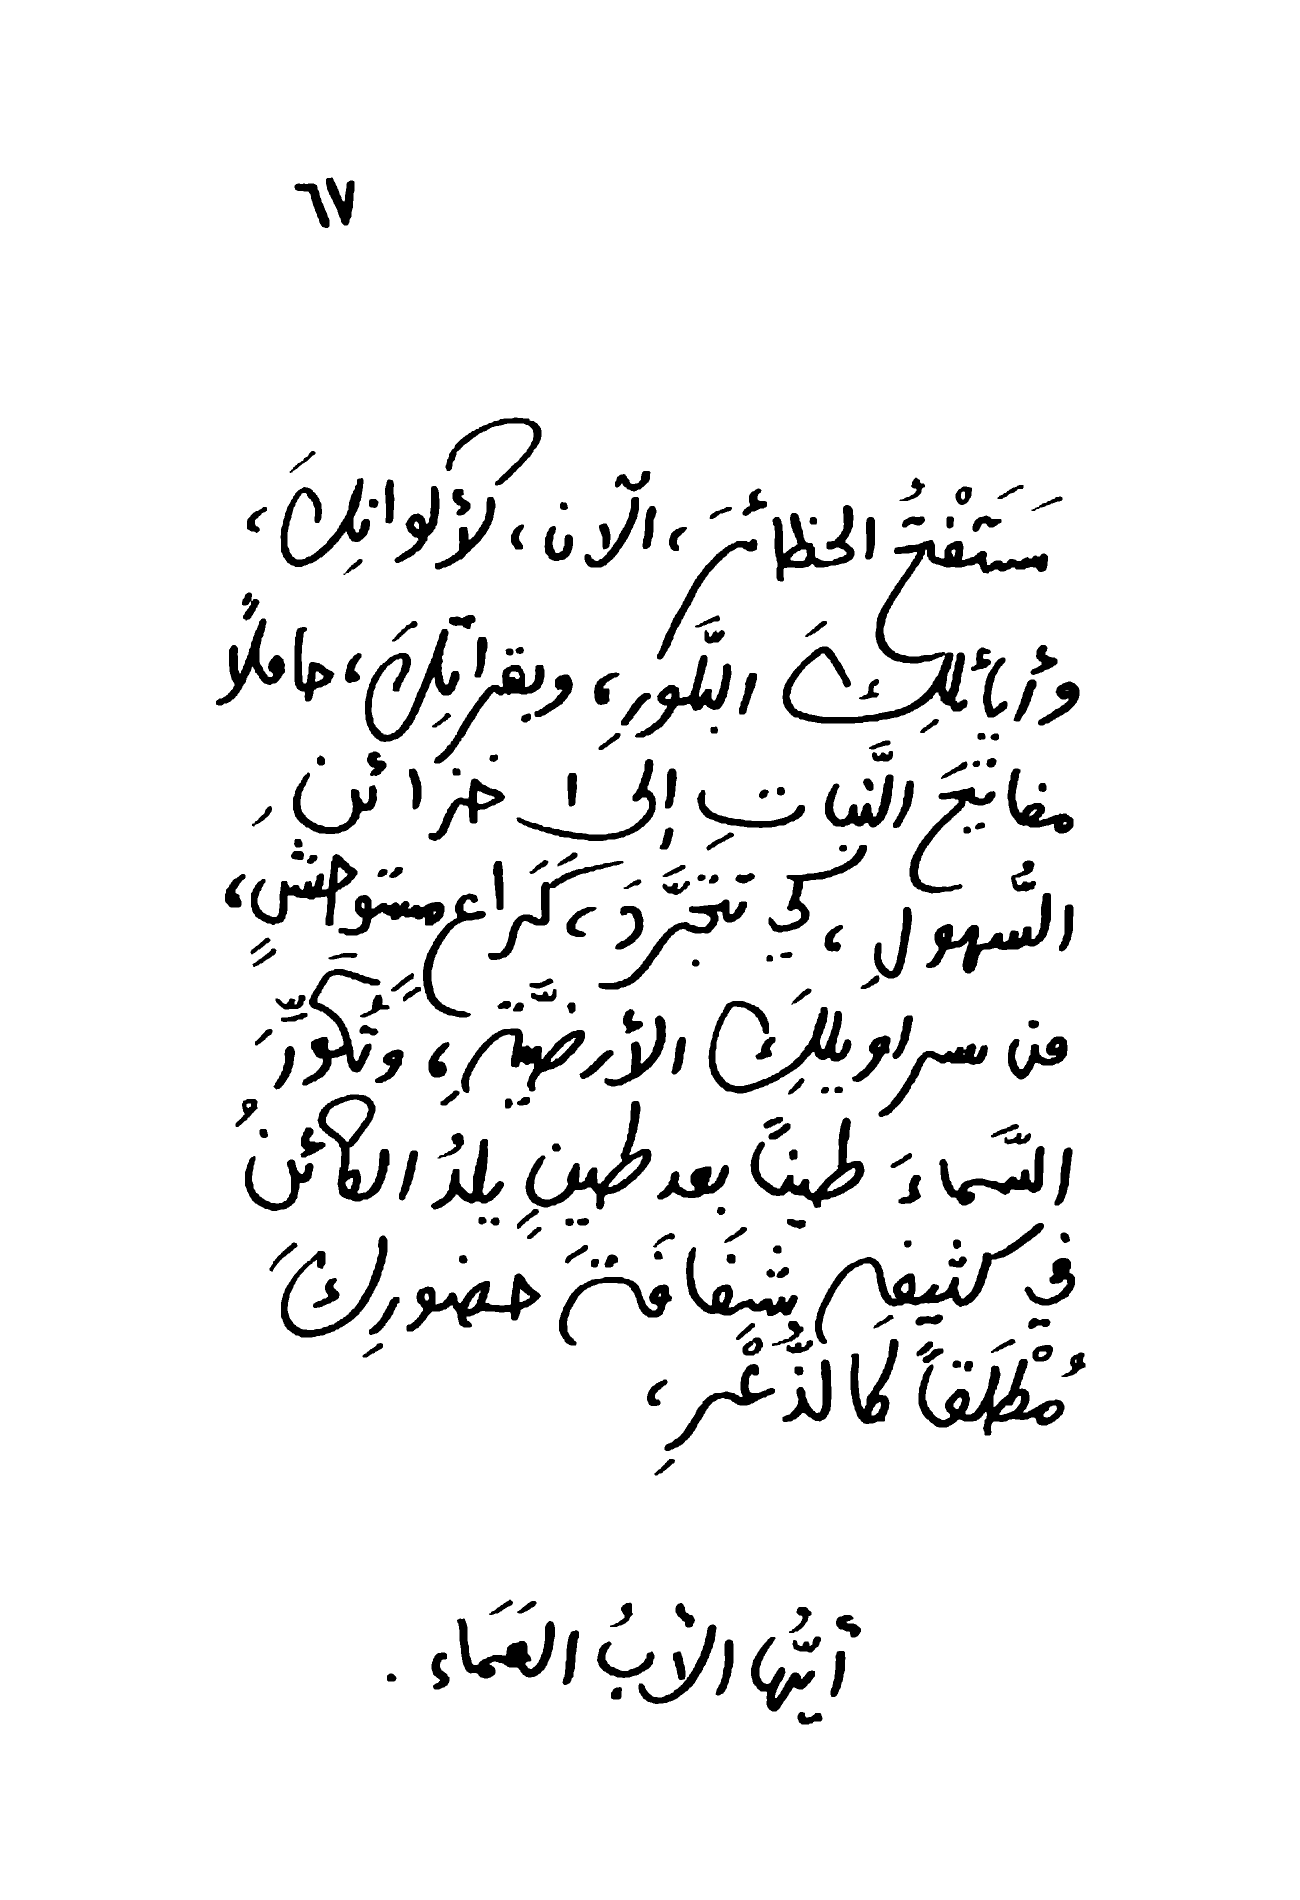 ٦٧
سَتَفْتَحُ الحظائرَ، الآن، لألوانِكَ،
وأيائلِكَ البلَّورِ، وبقراتِكَ، حاملاً
مفاتيحَ النَّباتِ إلى خزائنِ
السُّهولِ، كي تتجَرَّدَ، كَرَاعٍ مستوحشٍ،
من سراويلِكَ الأرضيَّةِ، وتُكَوِّرَ
السَّماءَ طيناً بعد طينٍ يلدُ الكائنُ
في كثيفِهِ شَفَافَةَ حضورِكَ
مُطْلَقاً كالذُّعْرِ،
أيُّها الأبُ العَمَاء.